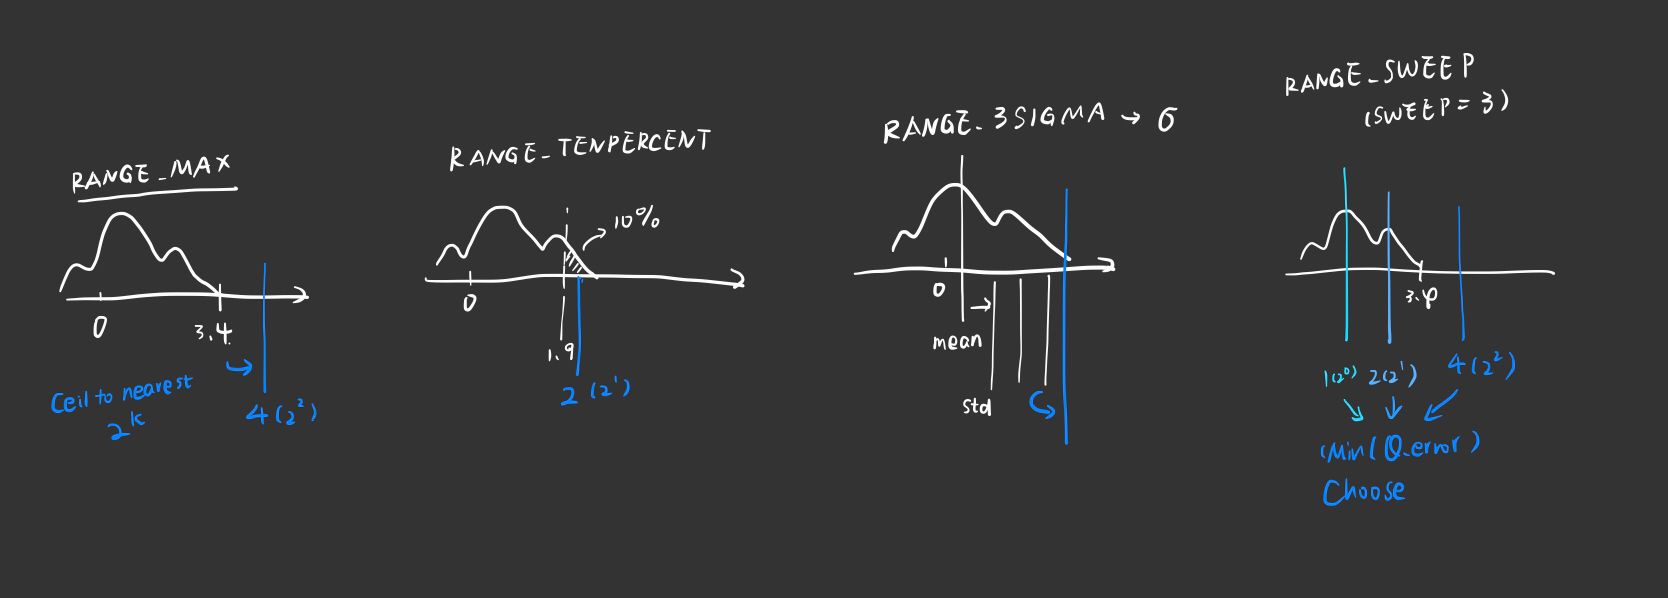 RANGE_MAX
0
3.4
Ceil to nearest
2^k
4 (2^2)
RANGE_TENPERCENT
10%
0
1.9
2 (2^1)
RANGE_3SIGMA → 6
0
mean
std
RANGE_SWEEP
(SWEEP = 3)
3.4
1(2^0) 2(2^1) 4(2^2)
(Min(Q_error)
Choose